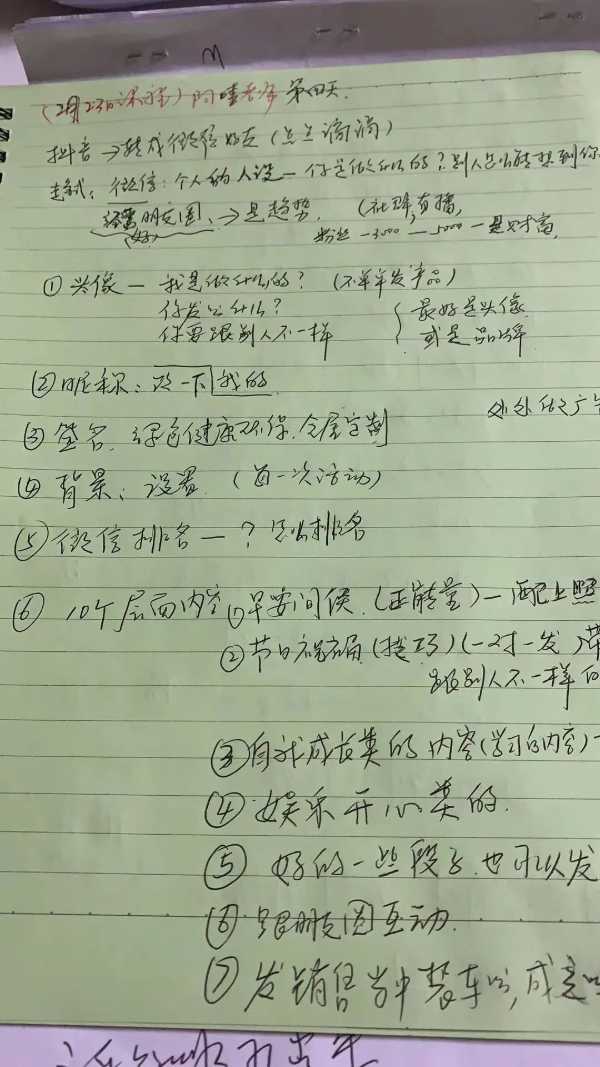 (2月23日课程) 阿哇老师 第四天.
抖音→转成微信好友(点点滴滴)
微信:个人的人设—你是做什么的?别人怎么能想到你
经营朋友圈、→是趋势. (社群,直播,
(好) 粉丝—3000—5000—是财富,
① 头像—我是做什么的?(不单单发产品)
你发心什么?
你要跟别人不一样 { 最好是头像 或是品牌
② 昵称:改一下我的
处处做广告
③ 签名、绿色健康环保、全屋定制
④ 背景:设置.(每一次活动)
⑤ 微信排名—?怎么排名
⑥ 10个层面内容 ①早安问候.(正能量)—配上照
②节日祝福(技巧)(一对一发)带
跟别人不一样的
③自我成长类的内容(学习的内容)
④娱乐开心类的.
⑤好的一些段子.也可以发
⑥跟朋友圈互动.
⑦发销售当中装车,成交